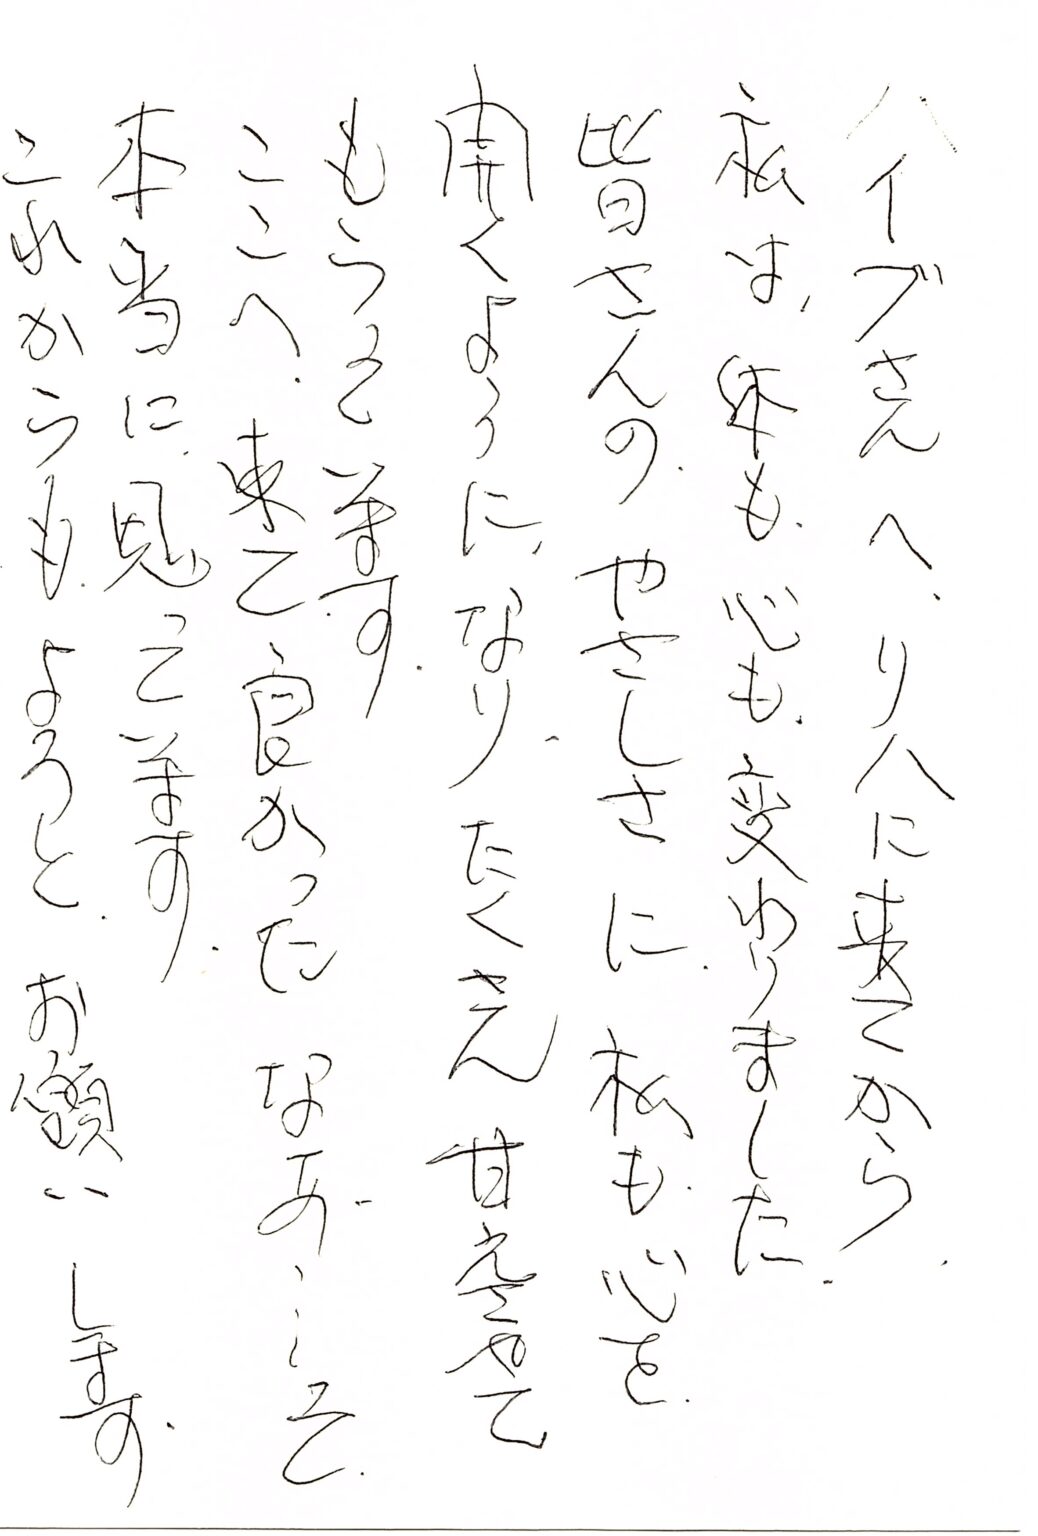 ハイブさんへ、リハに来てから、
私は、体も、心も、変わりました。
皆さんの、やさしさに、私も、心を、
開くように、なり、たくさん甘えさせて
もらっています。
ここへ、来て良かったなあ…って、
本当に、思っています。
これからも、よろしく、お願いします。